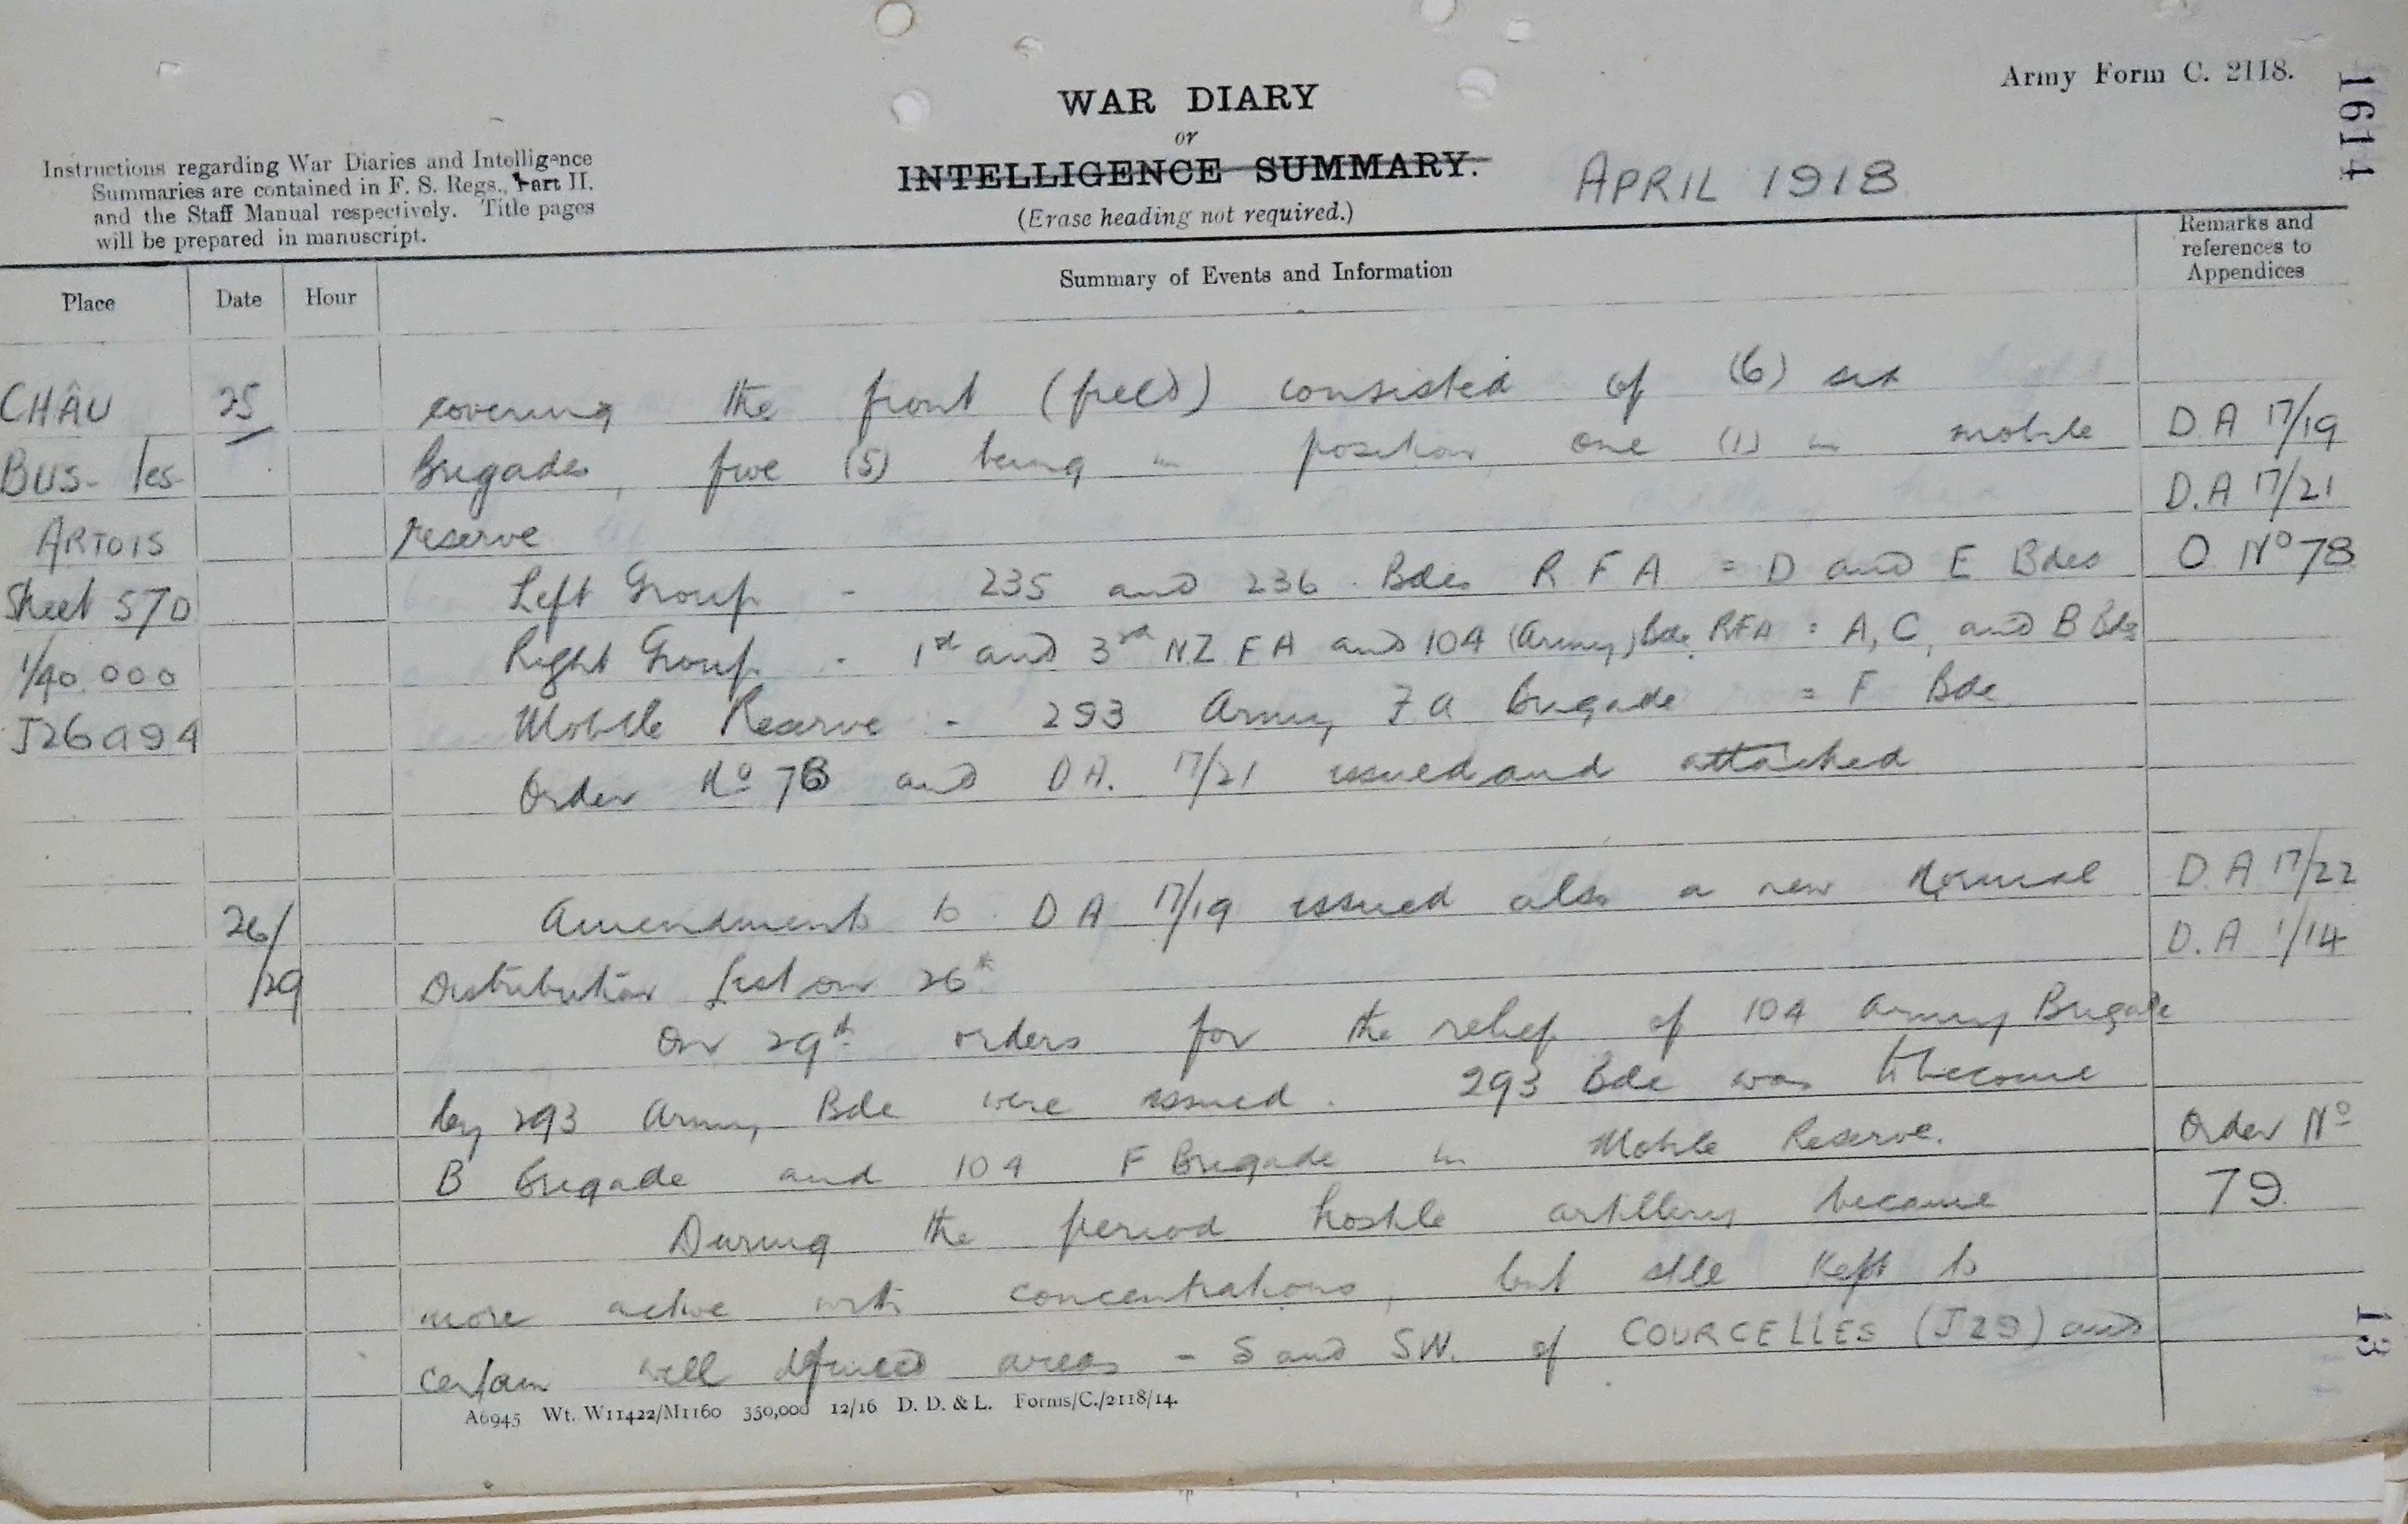 Army Form C. 2118.
1614
WAR DIARY
or
INTELLIGENCE SUMMARY.
(Erase heading not required.)
APRIL 1918
Instructions regarding War Diaries and Intelligence
Summaries are contained in F. S. Regs., Part II.
and the Staff Manual respectively. Title pages
will be prepared in manuscript.
Place Date Hour Summary of Events and Information Remarks and references to Appendices
CHÂU 25 covering the front (field) consisted of (6) six
BUS-les- Brigades, five (5) being in position one (1) in mobile D.A 17/19
ARTOIS reserve D.A 17/21
Sheet 57D Left Group - 235 and 236 Bdes R F A = D and E Bdes O Nº 78
1/40.000 Right Group - 1st and 3rd NZ F A and 104 (Army) Bde RFA = A, C, and B Bde
J26a94 Mobile Reserve - 293 Army F A Brigade = F Bde
Order Nº 78 and DA. 17/21 issued and attached
26/ Amendments to D A 17/19 issued also a new Normal D A 17/22
/29 Distribution List on 26th D.A 1/14
On 29th orders for the relief of 104 Army Brigade
by 293 Army Bde were issued. 293 Bde was to become
B Brigade and 104 F Brigade in Mobile Reserve. Order Nº
During the period hostile artillery became 79
more active with concentrations, but still kept to
certain well defined areas - S and SW. of COURCELLES (J29) and
13
A6945 Wt. W11422/M1160 350,000 12/16 D. D. & L. Forms/C./2118/14.